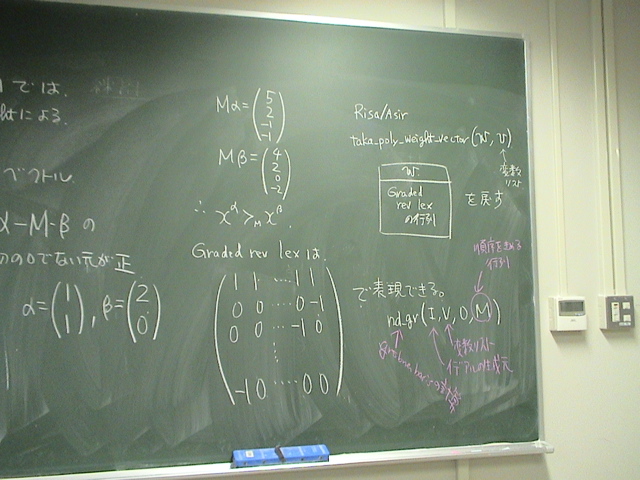 では、
htによる
ベクトル
α-M-βの
の0でない元が正
α=(1 1), β=(2 0)
Mα=(5 2 -1 -1)
Mβ=(4 2 0 -2)
∴ x^α >_M x^β.
Graded rev lex は
1 1 ..... 1 1
0 0 ..... 0 -1
0 0 ..... -1 0
-1 0 ..... 0 0
で表現できる。
Risa/Asir
taka_poly_weight_vector(w, v)
変数
リスト
w
Graded
rev lex
の行列
を戻す
順序を決める
行列
nd_gr(I, V, 0, M)
変数リスト
イデアルの生成元